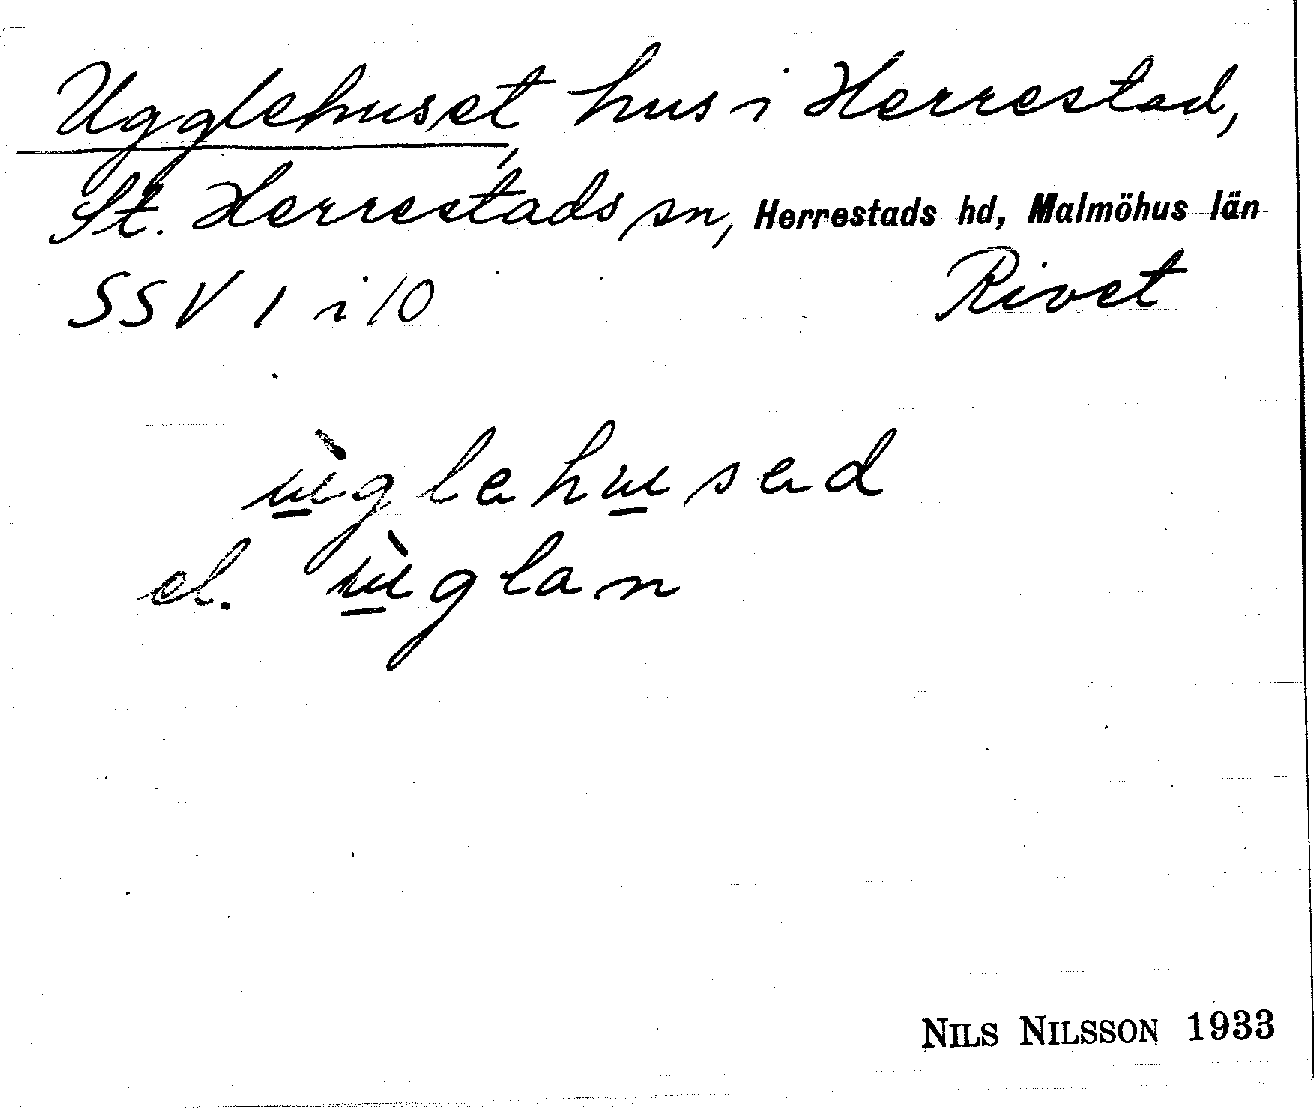 Ugglehuset, hus i Herrestad,
St. Herrestads sn, Herrestads hd, Malmöhus län
SSV 1 i 10 Rivet
ɯ̲̀glahɯ̲sad
el. ɯ̲̀glan
NILS NILSSON 1933